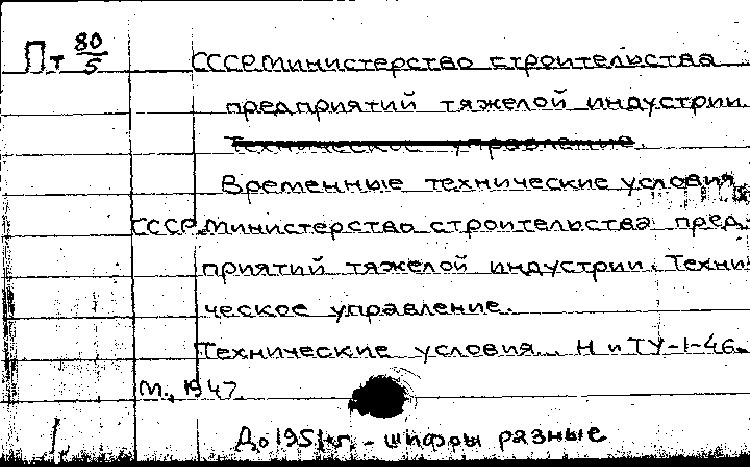 Пт 80/5
СССР. Министерство строительства
предприятий тяжелой индустрии.
Техническое управление.
Временные технические условия
СССР. Министерство строительства пред-
приятий тяжелой индустрии. Техни
ческое управление.
Технические условия... Н и ТУ-1-46.
М., 1947.
До 1951 г. - шифры разные